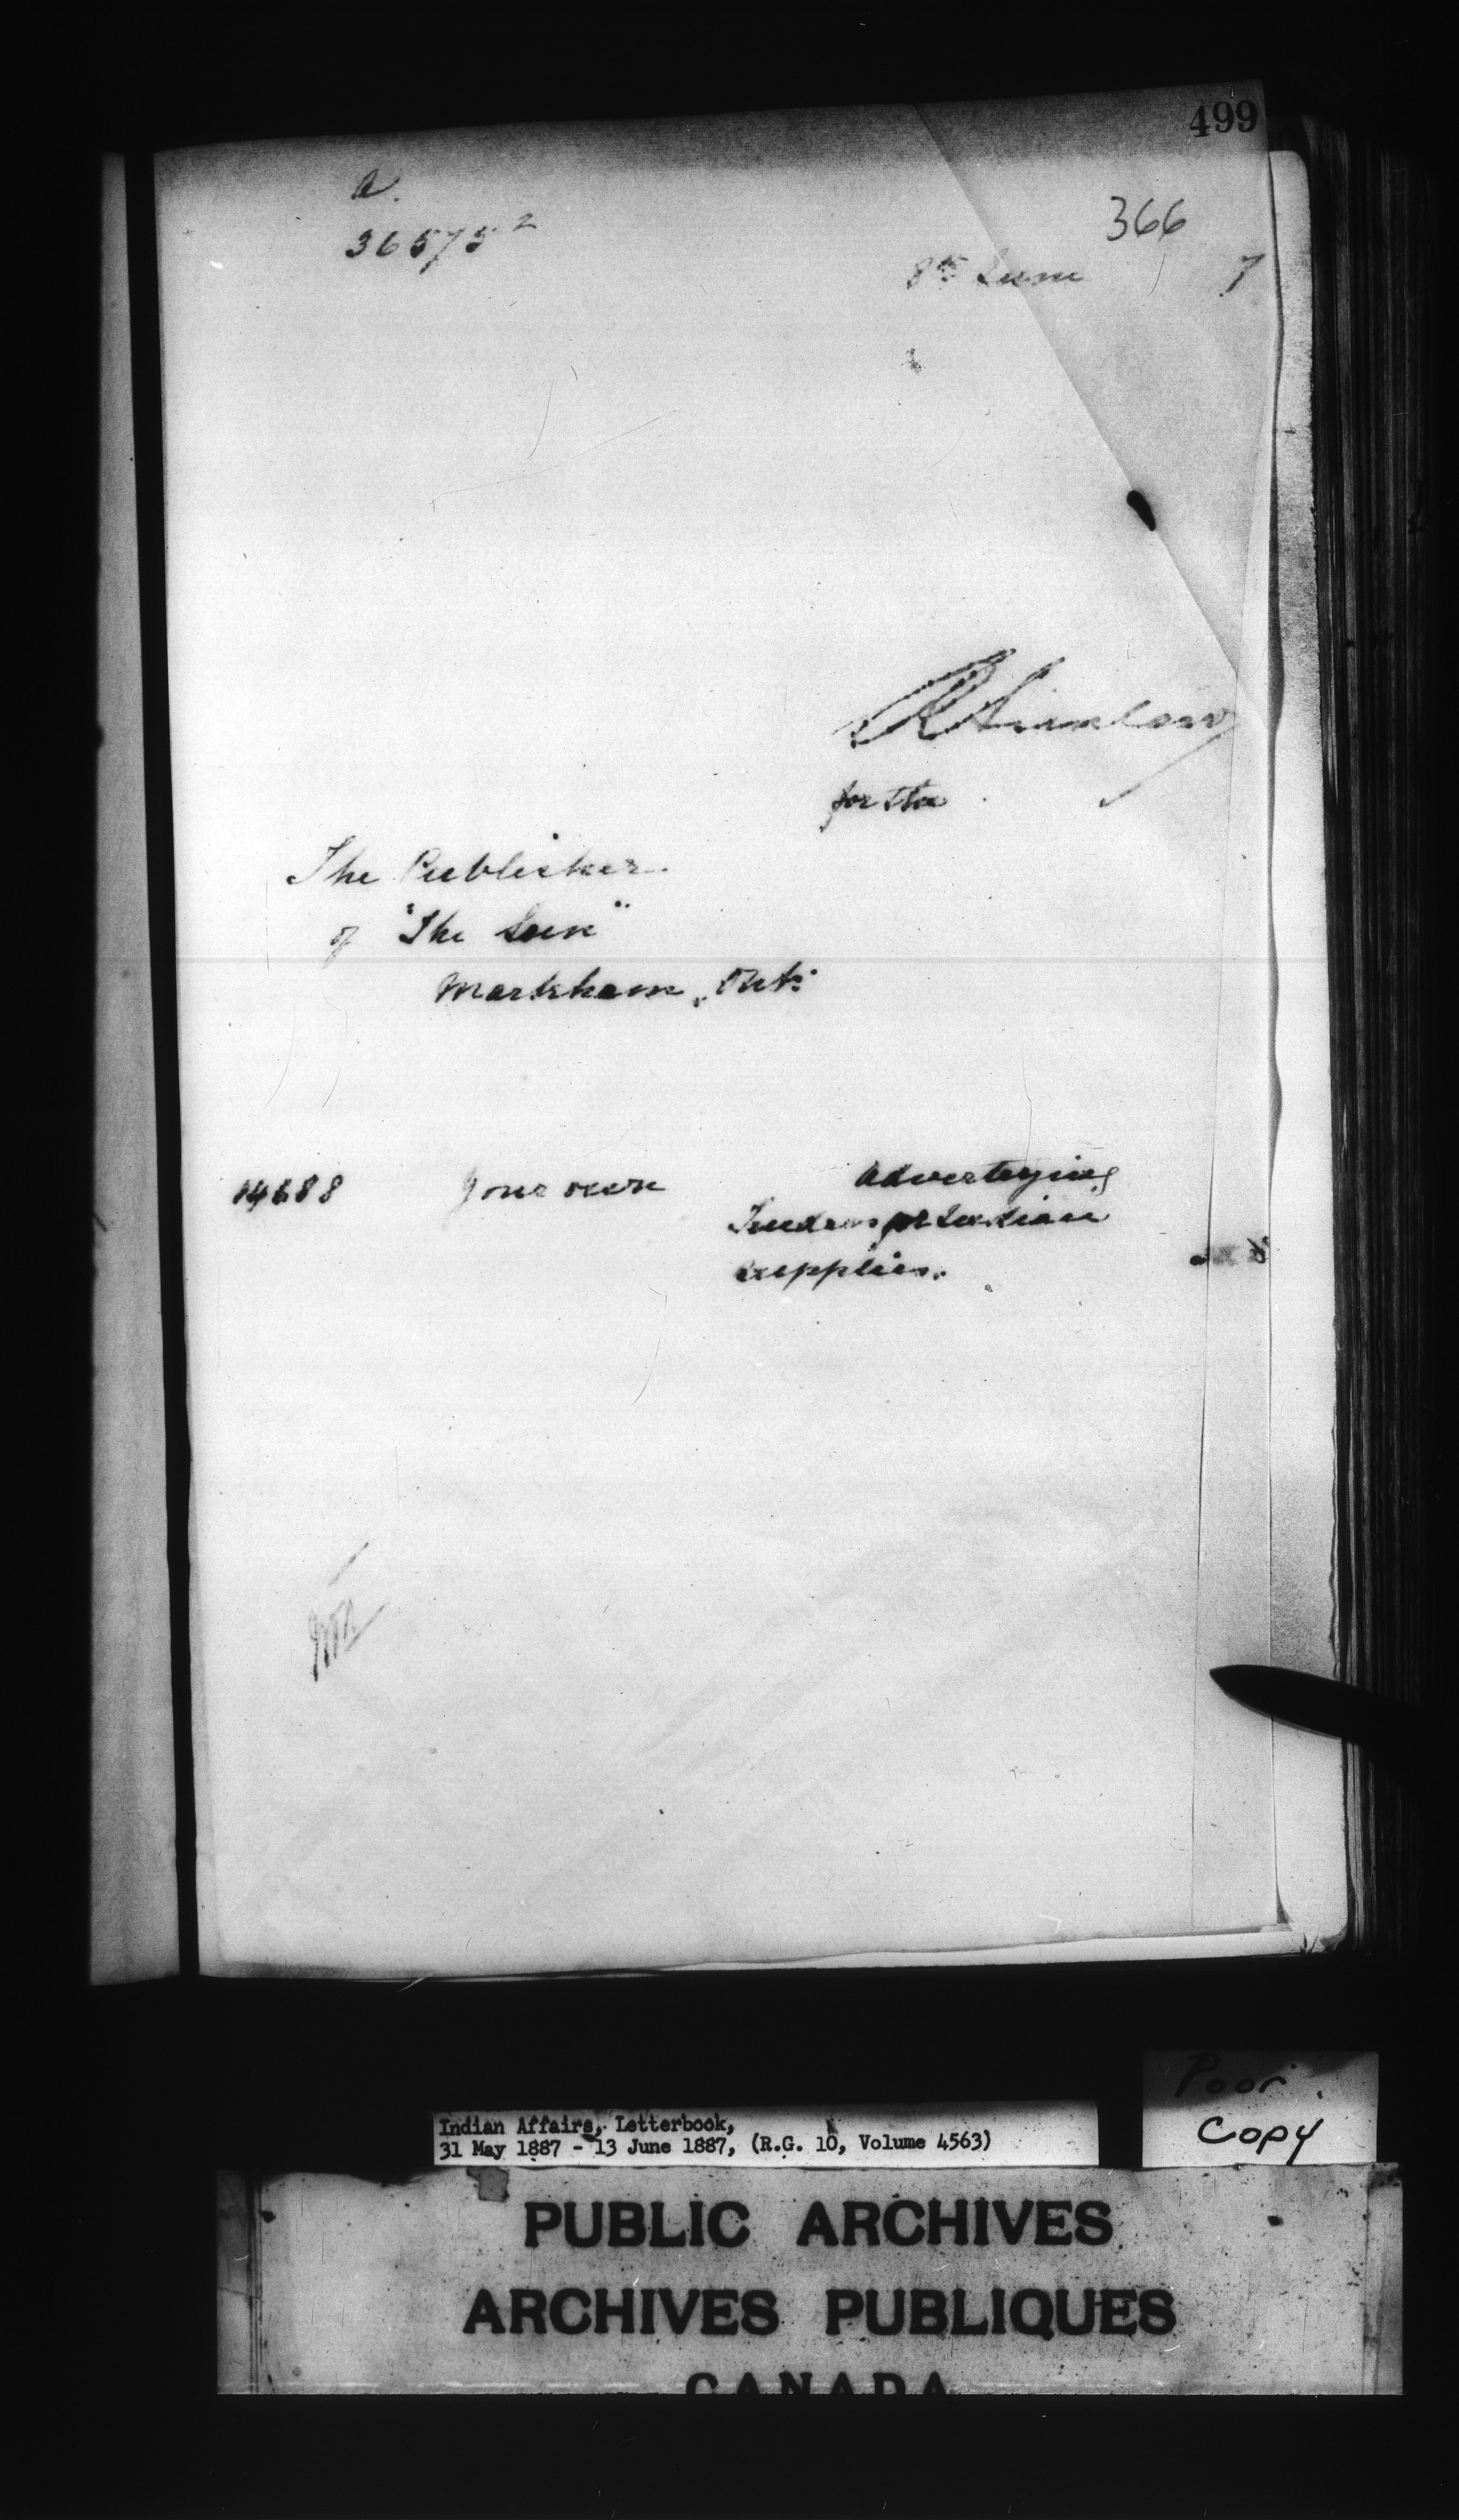 499
a.
36575²
366
8th June 7
R Sinclair
for the
The Publisher
of "The Sun"
Markham, Ont.
14688 Your own Advertising
Tenders for Indian
supplies.
Poor
Copy
Indian Affairs, Letterbook,
31 May 1887 - 13 June 1887, (R.G. 10, Volume 4563)
PUBLIC ARCHIVES
ARCHIVES PUBLIQUES
CANADA